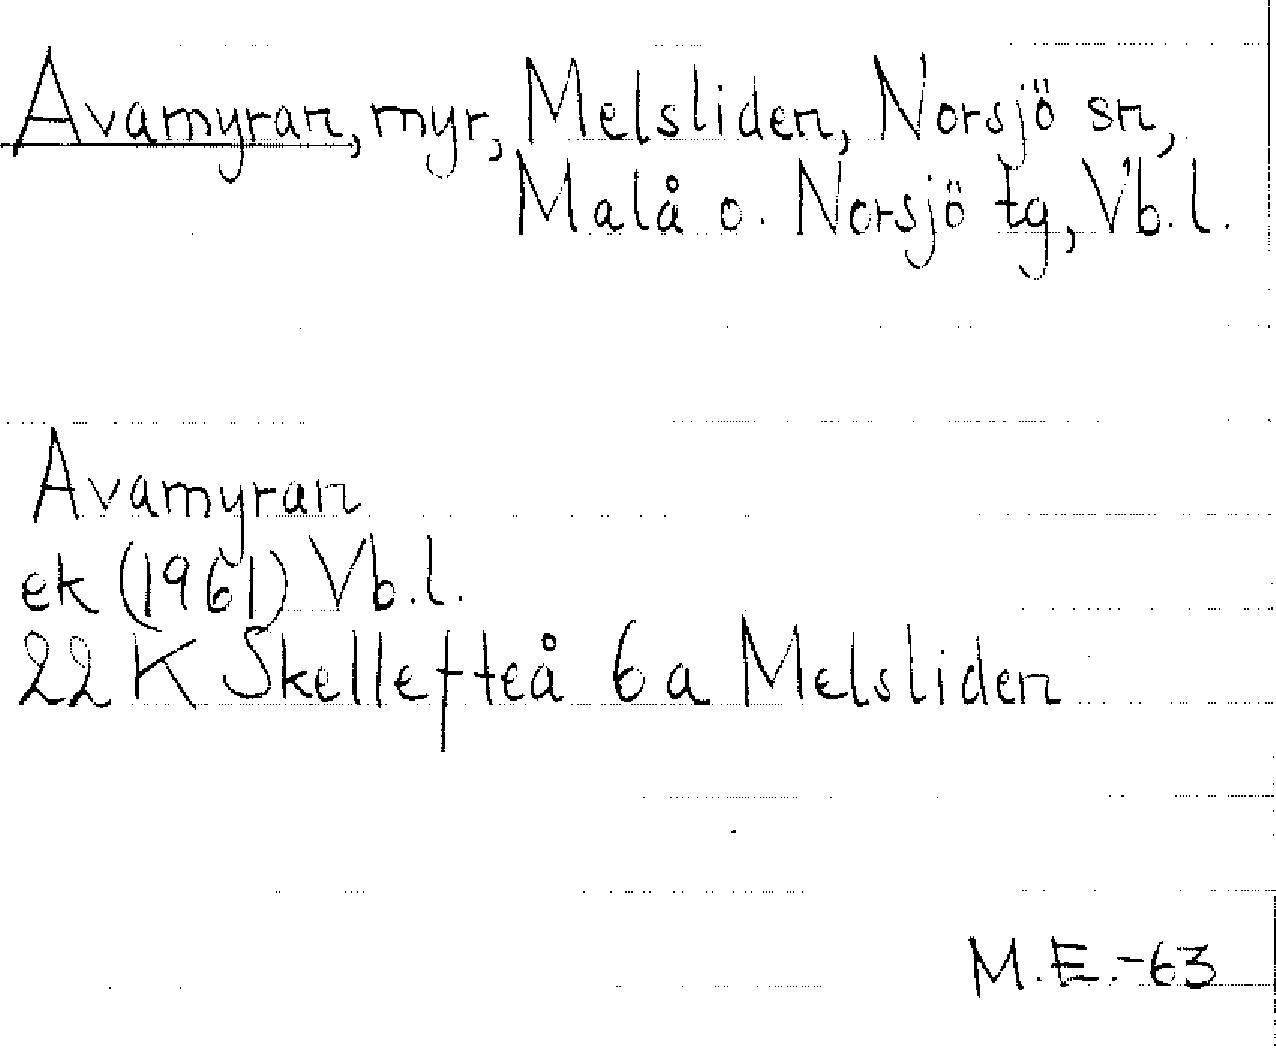 Avamyran, myr, Melsliden, Norsjö sn,
Malå o. Norsjö tg, Vb.l.
Avamyran
ek (1961) Vb.l.
22 K Skellefteå 6 a Melsliden
M.E.-63